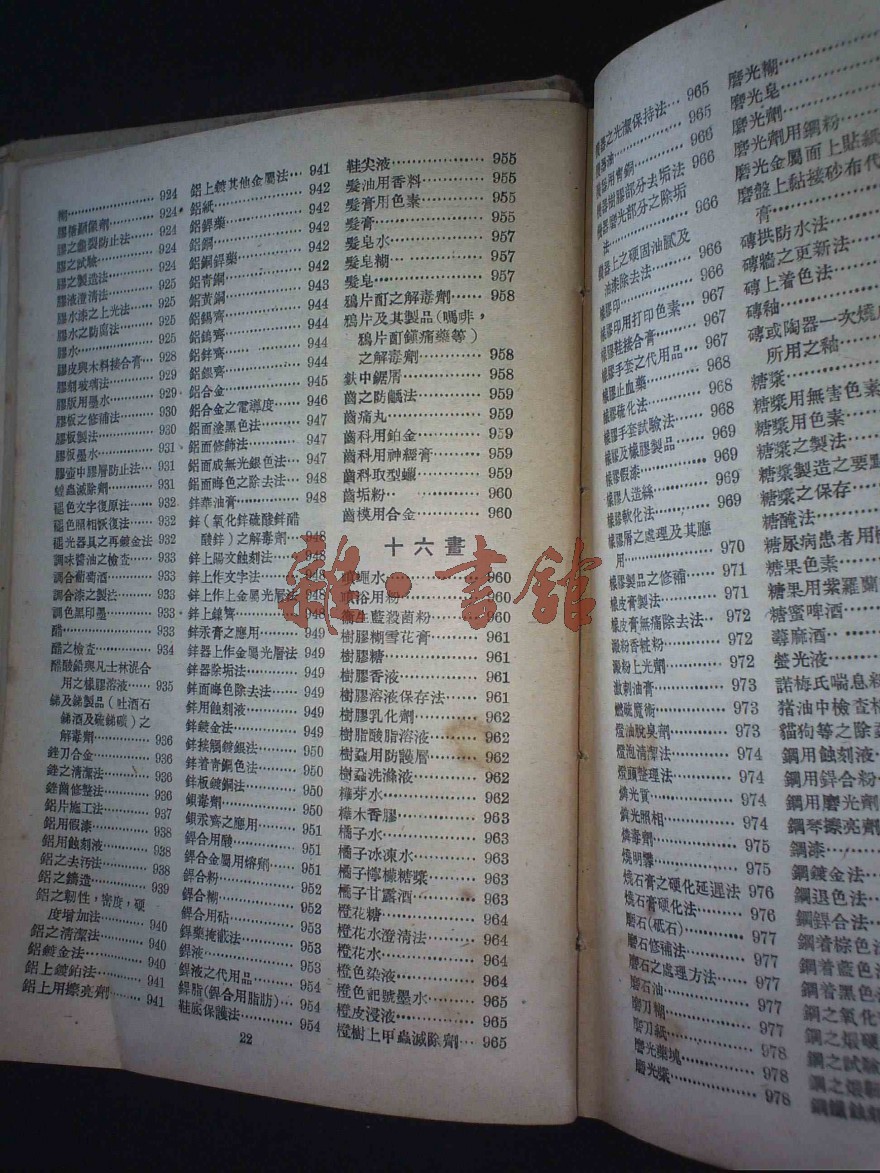 膠之龜裂防止法……924
膠之試驗……924
膠之製造法……924
膠液澄清法……924
膠水漆之上光法……924
膠水之防腐法……
膠水……
膠皮與木料接合膏……
膠刻玻璃法……929
膠版用墨水……929
膠板之修補法……930
膠板製法……930
膠板墨水……931
膠壺中膠層防止法……931
蝗蟲滅除劑……931
褪色文字復原法……932
褪色照相恢復法……932
褪光器具之再鍍金法……932
調味醬油之檢查……933
調合葡萄酒……933
調合漆之製法……933
調色黑印墨……933
醋……933
醋之檢查……934
醋酸鉛與凡士林混合
用之橡膠溶液……935
銻及銻製品(吐酒石
銻酒及硫銻礦)之
解毒劑……936
銼刀合金……936
銼之清潔法……936
銼齒修整法……936
鋁片施工法……937
鋁用假漆……938
鋁用蝕刻液……938
鋁之去汚法……938
鋁之鑄造……939
鋁之韌性,密度,硬
度增加法……940
鋁之清潔法……940
鋁鍍金法……940
鋁上鍍鉑法……941
鋁上用擦亮劑……941
鋁上鍍其他金屬法……941
鋁紙……942
鋁銲藥……942
鋁銅……942
鋁銅銲藥……942
鋁青銅……942
鋁黃銅……944
鋁錫齊……944
鋁鎢齊……944
鋁鋅齊……944
鋁銀齊……944
鋁合金……945
鋁合金之電導度……946
鋁面塗黑色法……947
鋁面修飾法……947
鋁面成無光銀色法……947
鋁面晦色之除去法……948
鋅華油膏……948
鋅(氧化鋅硫酸鋅醋
酸鋅)之解毒劑……948
鋅上陽文蝕刻法……948
鋅上作文字法……948
鋅上作上金屬光層法……948
鋅上鎳齊……948
鋅汞膏之應用……949
鋅器上作金屬光層法 949
鋅器除垢法……949
鋅面晦色除去法……949
鋅用蝕刻液……949
鋅鍍金法……949
鋅接觸鍍銀法……950
鋅着青銅色法……950
鋅板鍍銅法……950
鋇毒劑……950
鋇汞齊之應用……951
銲合用酸……951
銲合金屬用鎔劑……951
銲合粉……952
銲合糊……952
銲合用砧……952
銲藥掩截法……953
銲液……953
銲液之代用品……953
銲脂(銲合用脂肪)……954
鞋底保護法……954
鞋尖液……955
髮油用香料……955
髮膏用色素……955
髮膏……957
髮皂水……957
髮皂糊……957
髮皂……957
鴉片酊之解毒劑……958
鴉片及其製品(嗎啡,
鴉片酊鎮痛藥等)
之解毒劑……958
齒之防齲法……959
齒痛丸……959
齒科用鉑金……959
齒科用神經膏……959
齒科取型蠟……959
齒垢粉……960
齒模用合金……960
十六畫
960
浴用粉……960
衞生藍殺菌粉……960
樹膠糊雪花膏……961
樹膠糖……961
樹膠香液……961
樹膠溶液保存法……961
樹膠乳化劑……962
樹脂酸脂溶液……962
樹蝨用防護層……962
樹蝨洗滌液……962
962
木香膠……962
橘子水……963
橘子冰凍水……963
橘子檸檬糖漿……963
橘子甘露酒……963
橙花糖……964
橙花水澄清法……964
橙花水……964
橙色染液……964
橙色記號墨水……965
橙皮浸液……965
橙樹上甲蟲滅除劑……965
22
機器之光潔保持法……965
機器油……965
機器用青銅……966
機器橡膠部分去垢法 966
機器磨光部分之除垢
法……966
機器上之硬固油膩及
油漆除去法……966
橡膠印……967
橡膠印用打印色素……967
橡膠鞋接合膏……967
橡膠手套之代用品……967
橡膠止血藥……968
橡膠硫化法……968
橡膠手套試驗法……968
橡膠及橡膠製品……968
橡膠假漆……969
橡膠人造絲……969
橡膠軟化法……969
橡膠層之處理及其應
用……970
橡膠製品之修補……971
橡皮膏製法……971
橡皮膏無痛除去法……972
澱粉香粧粉……972
澱粉上光劑……972
激刺油膏……973
燃硫魔術……973
燈油脫臭劑……973
燈泡清潔法……974
燈頭整理法……974
燐光質……974
燐光照相……974
燐毒劑……975
燒明礬……975
燒石膏之硬化延遲法 976
燒石膏硬化法……976
磨石(砥石)……977
磨石修補法……977
磨石之處理方法……977
磨石油……977
磨刀糊……977
磨刀紙……978
磨光藥塊……978
磨光漿……978
磨光糊……
磨光皂……
磨光劑……
磨光劑用鋼粉……
磨光金屬面上貼紙
磨盤上黏接砂布代
膏……
磚拱防水法……
磚牆之更新法……
磚上着色法……
磚釉……
磚或陶器一次燒
所用之釉……
糖漿……
糖漿用無害色素……
糖漿用色素……
糖漿之製法……
糖漿製造之要點
糖漿之保存……
糖醃法……
糖尿病患者用
糖果色素……
糖果用紫羅蘭
糖蜜啤酒……
蕁麻酒……
螢光液……
諾梅氏喘息
猪油中檢查
貓狗等之除
鋼用蝕刻液……
鋼用銲合粉……
鋼用磨光劑……
鋼琴擦亮劑……
鋼漆……
鋼鍍金法……
鋼退色法……
鋼銲合法……
鋼着棕色法……
鋼着藍色法……
鋼着黑色法
鋼之氧化
鋼之煅硬
鋼之試驗
鋼之煅
鋼鐵蝕刻
雜·書館